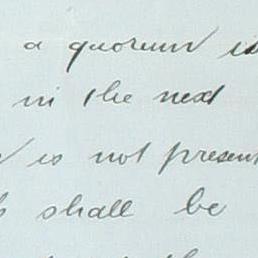 a quorum is
in the next
is not present
shall be